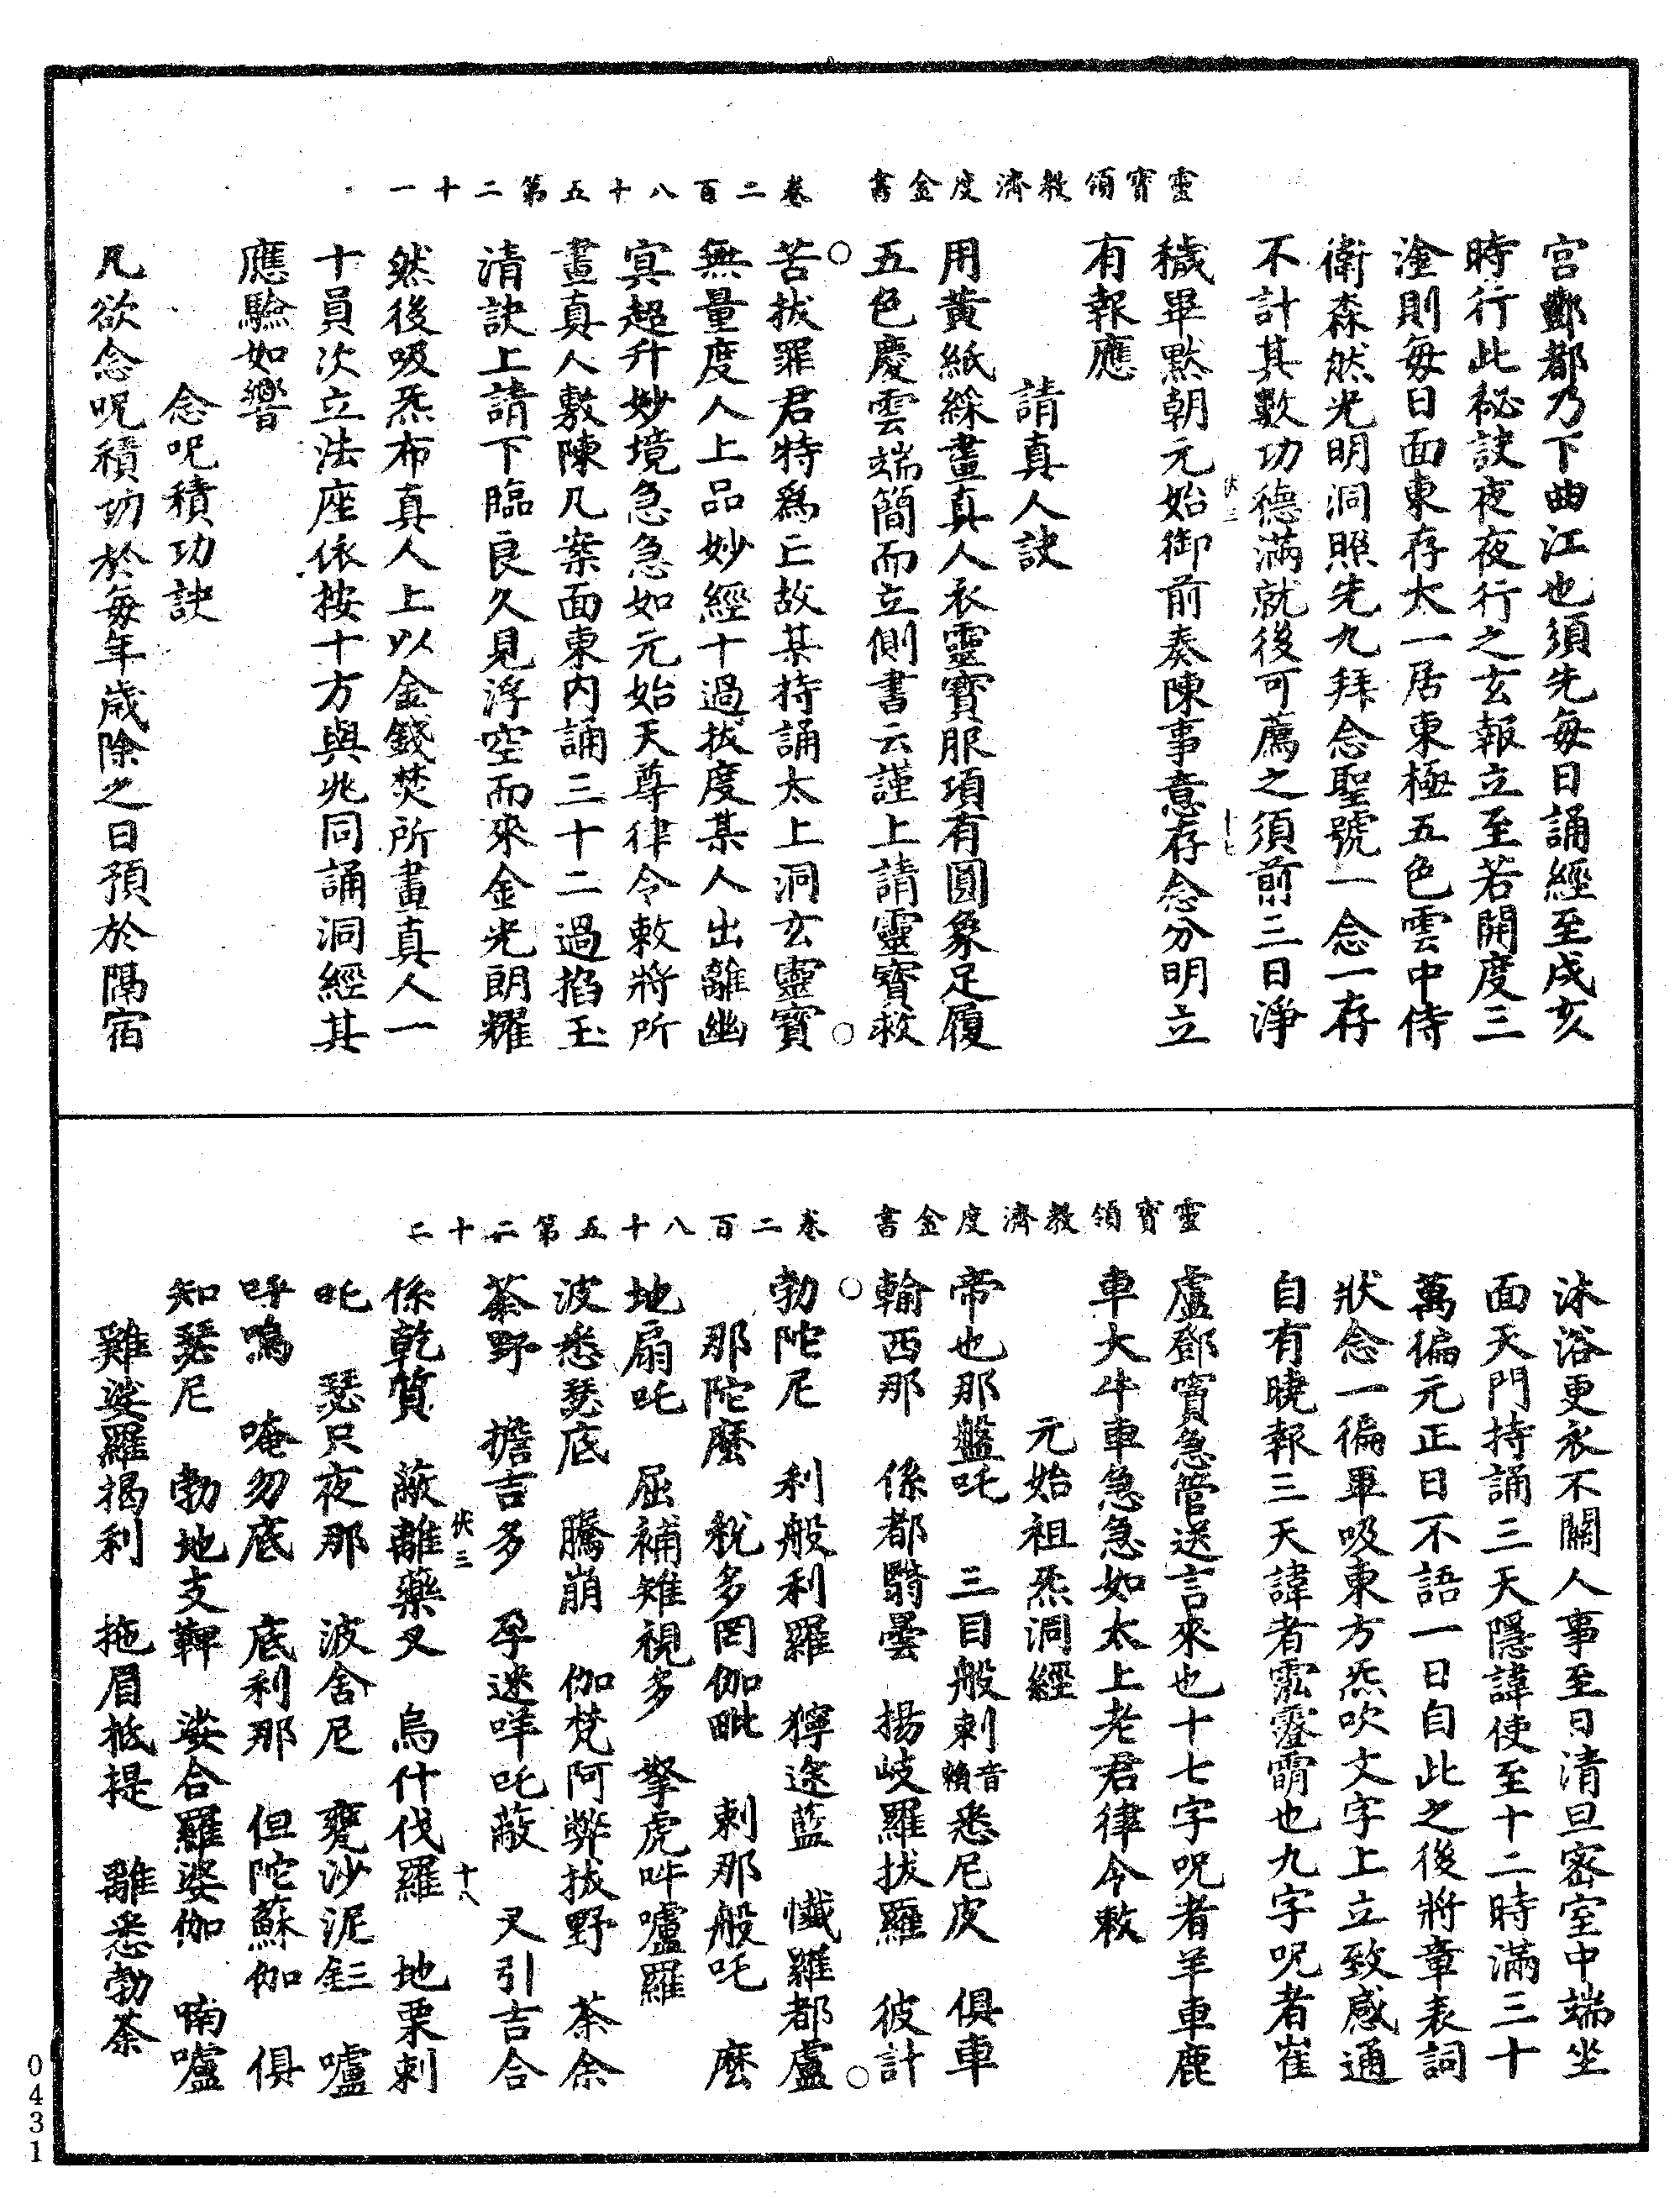 靈寶領教濟度金書　卷二百八十五第二十一
宮酆都乃下曲江也須先每日誦經至戌亥
時行此秘訣夜夜行之玄報立至若開度三
塗則每日面東存太一居東極五色雲中侍
衛森然光明洞照先九拜念聖號一念一存
不計其數功德滿就後可薦之須前三日淨
伏三　十七
穢畢默朝元始御前奏陳事意存念分明立
有報應
請真人訣
用黃紙綵畫真人衣靈寶服項有圓象足履
五色慶雲端簡而立側書云謹上請靈寶救
苦拔罪君特爲亡故某持誦太上洞玄靈寶
無量度人上品妙經十過拔度某人出離幽
冥超升妙境急急如元始天尊律令敕將所
畫真人敷陳几案面東內誦三十二過掐玉
清訣上請下臨良久見浮空而來金光朗耀
然後吸炁布真人上以金錢焚所畫真人一
十員次立法座依按十方與兆同誦洞經其
應驗如響
念呪積功訣
凡欲念呪積功於每年歲除之日預於隔宿
靈寶領教濟度金書　卷二百八十五第二十二
沐浴更衣不關人事至日清旦密室中端坐
面天門持誦三天隱諱使至十二時滿三十
萬徧元正日不語一日自此之後將章表詞
狀念一徧畢吸東方炁吹文字上立致感通
自有曉報三天諱者霐霳霌也九字呪者崔
盧鄧竇急管送言來也十七字呪者羊車鹿
車大牛車急急如太上老君律令敕
元始祖炁洞經
帝也那盤吒　三目般剌音賴悉尼皮　俱車
輸西那　係都翳曇　揚岐羅拔羅　彼計
勃陀尼　利般利羅　獰迯藍　懺羅都盧
那陀麽　㲠多罔伽毗　剌那般吒　麽
地扇吒　屈補雉視多　拏虎吽嚧羅
波悉瑟底　騰崩　伽梵阿弊拔野　茶余
荼野　擔吉多　孕迷咩吒蔽　叉引吉合
係乾質　蔽離藥叉　烏什伐羅　地栗剌
伏三　十八
吒　瑟只夜那　波舍尼　甕沙泥釤　嚧
呼嗚　唵勿底　底利那　但陀蘇伽　俱
知瑟尼　勃地支鞞　娑合羅婆伽　喃嚧
雞娑羅揭利　拖眉柢提　離悉勃荼
0431